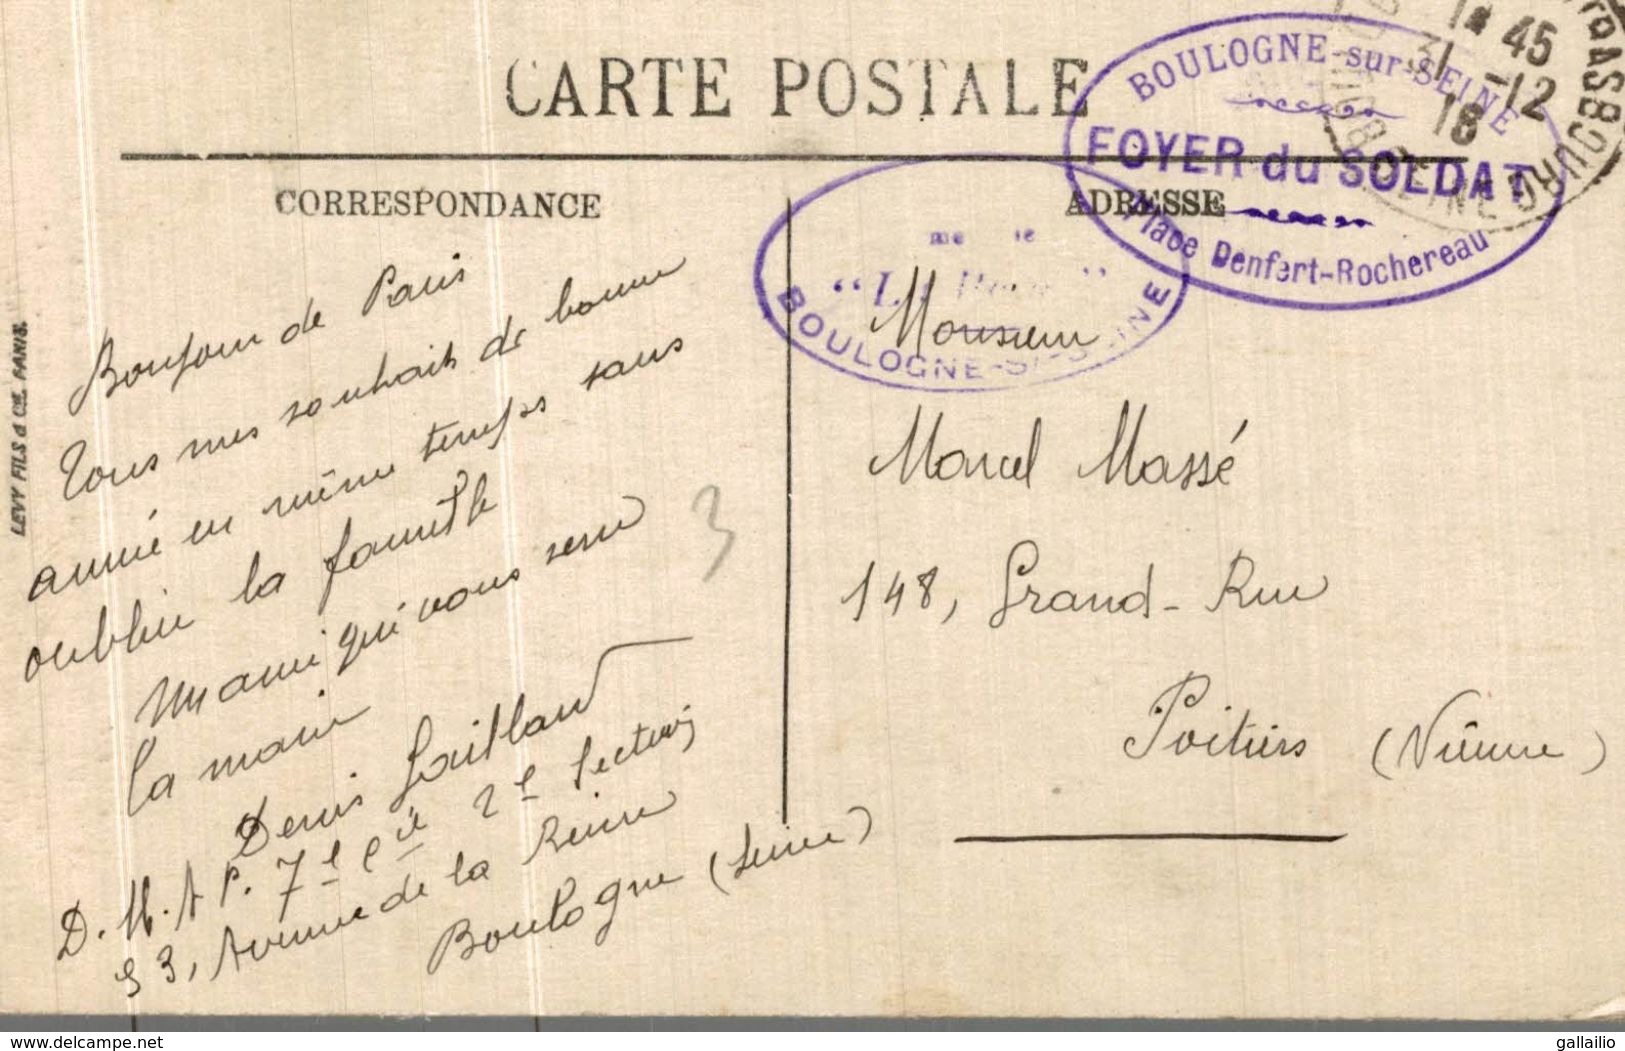 CARTE POSTALE
BOULOGNE-sur-SEINE
FOYER du SOLDAT
Place Denfert-Rochereau
1* 45
31 -12
18
STRASBOURG
SEINE
CORRESPONDANCE
ADRESSE
BOULOGNE-S/-SEINE
LEVY FILS & CIE. PARIS.
Bonjour de Paris
Tous mes souhaits de bonne
année en même temps sans
oublier la famille
Un ami qui vous serre
la main
Denis Gaillard
D. M. A P. 7e Cie 2e Section
53, Avenue de la Reine
Boulogne (Seine)
3
Monsieur
Marcel Massé
148, Grand-Rue
Poitiers (Vienne)
delcampe.net
gallailio